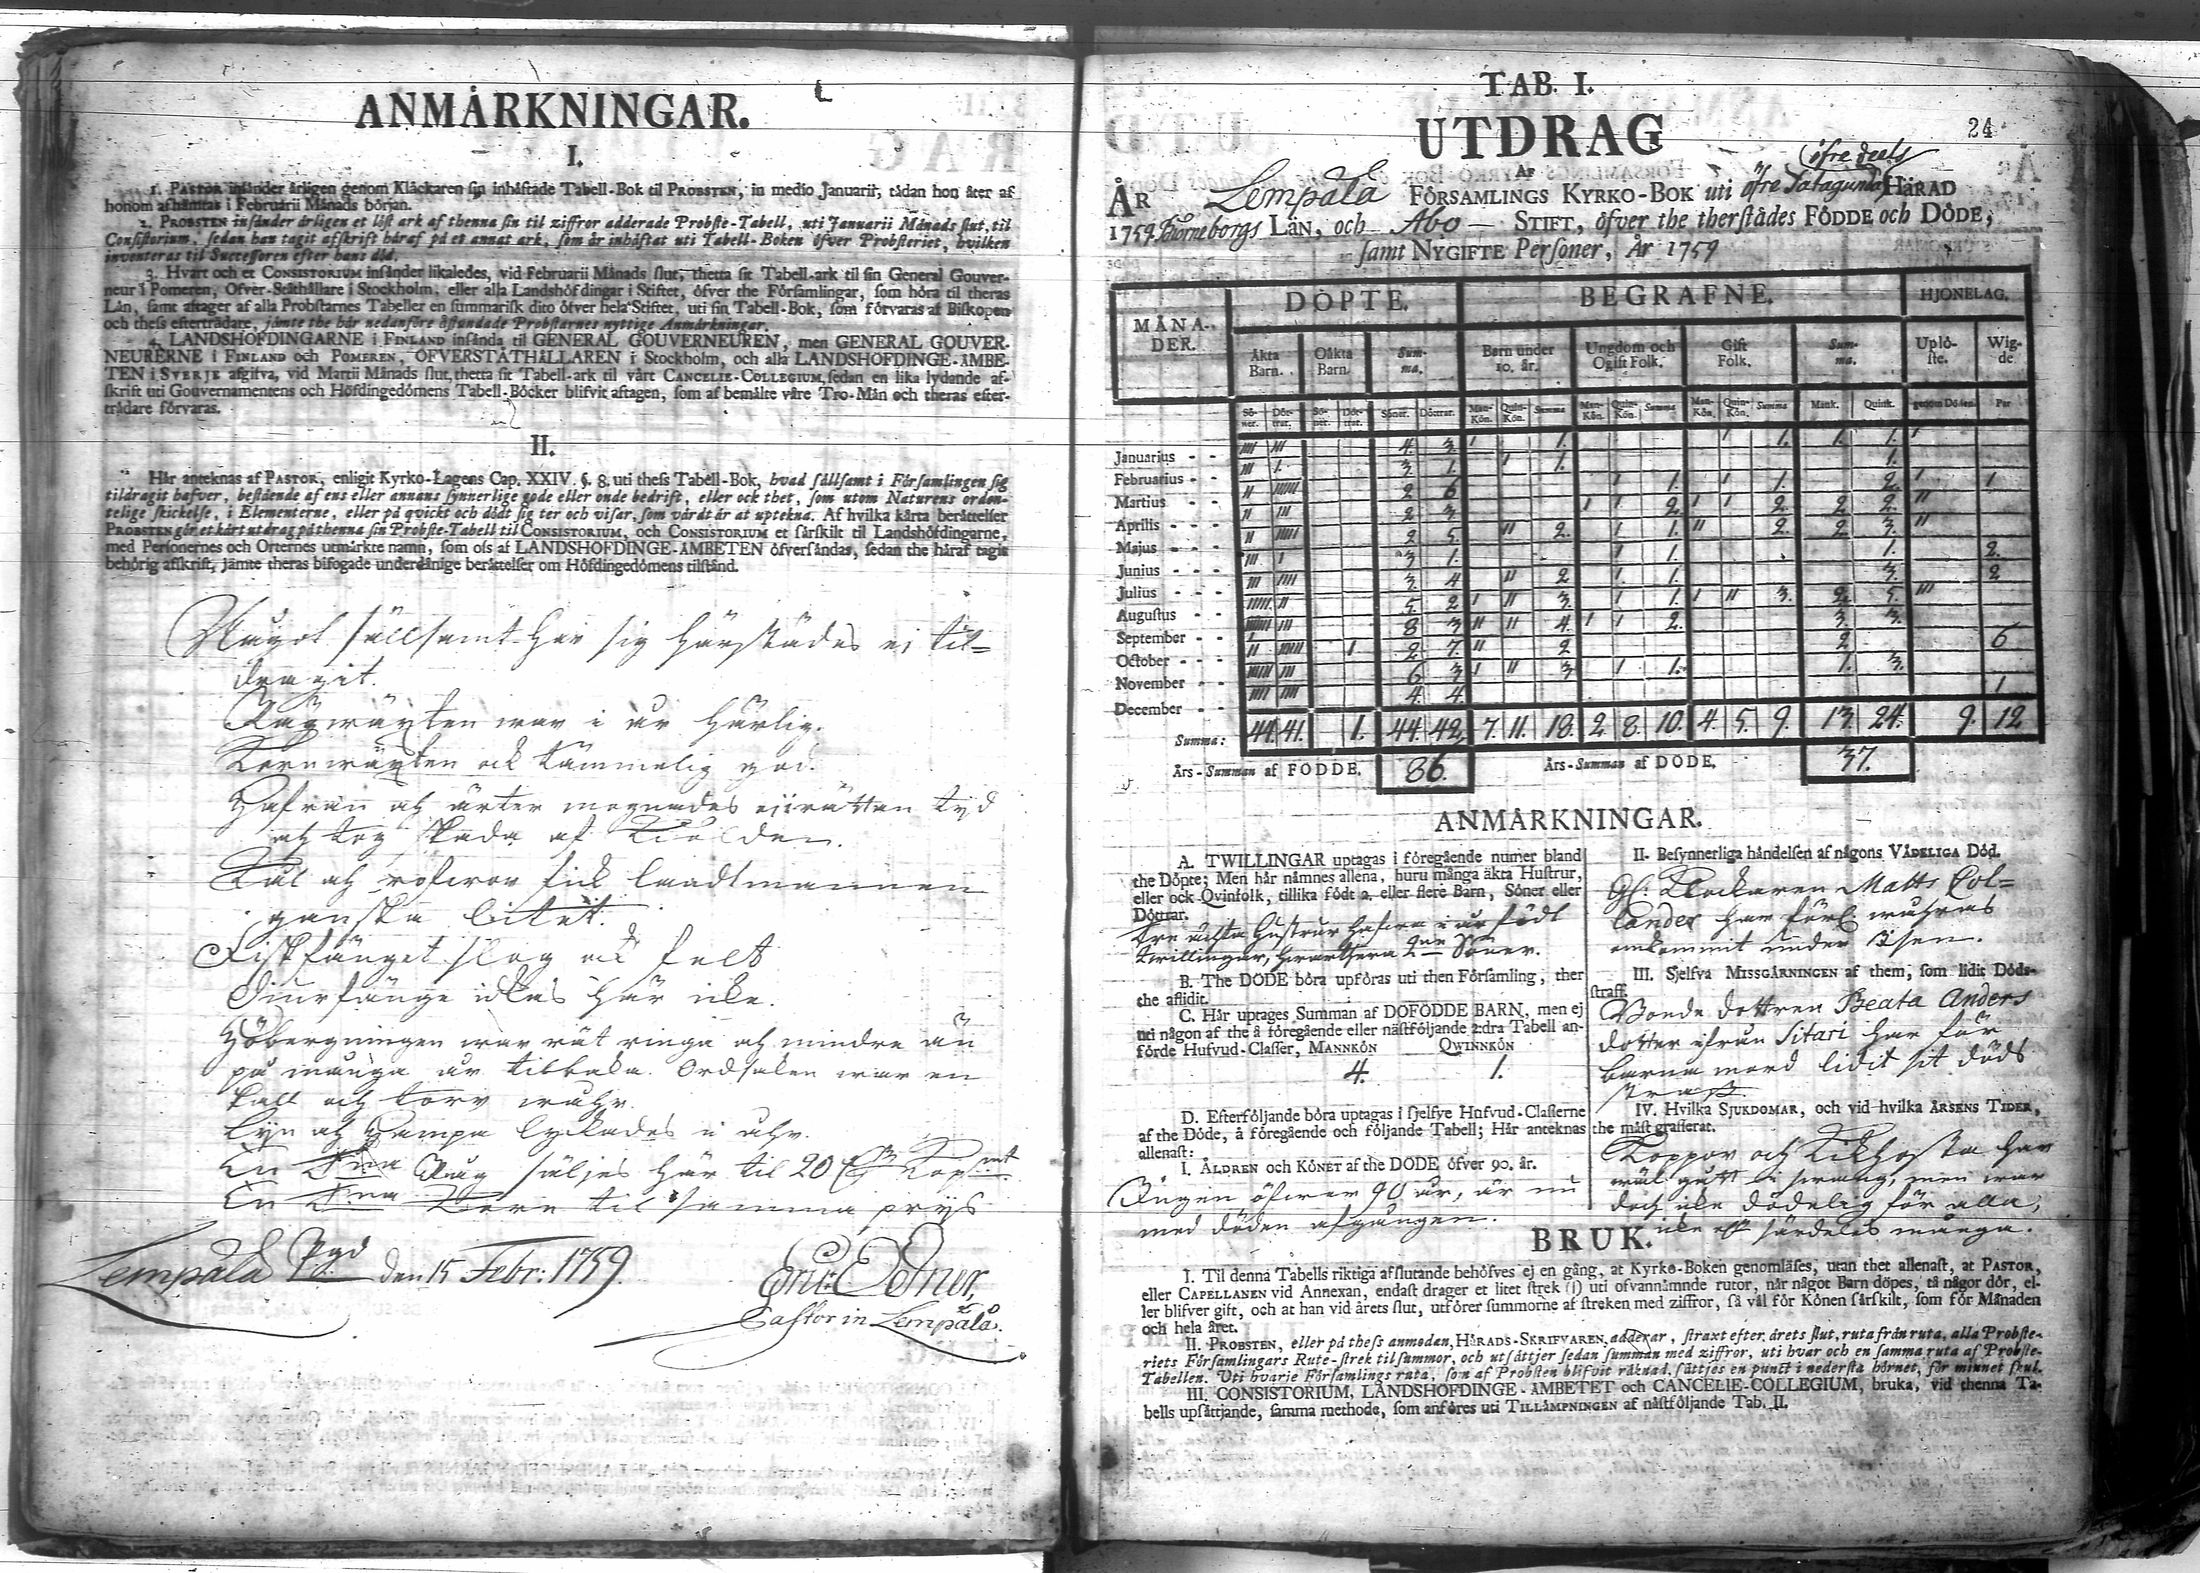 ANMÄRKNINGAR.
I.
1. PASTOR insänder årligen genom Klåckaren sin inhäftade Tabell-Bok til PROBSTEN, in medio Januarii, tådan hon åter af
honom afhämtas i Februarii Månads början.
2. PROBSTEN insänder årligen et löst ark af thenna sin til ziffror adderade Probste-Tabell, uti Januarii Månads slut, til
Consistorium, sedan han tagit afskrift häraf på et annat ark, som är inhäftat uti Tabell-Boken öfver Probsteriet, hvilken
inventeras til Successoren efter hans död.
3. Hvart och et CONSISTORIUM insänder likaledes, vid Februarii Månads slut, thetta sit Tabell-ark til sin General Gouver-
neur i Pomeren, Öfver-Ståthållare i Stockholm, eller alla Landshöfdingar i Stiftet, öfver the Församlingar, som höra til theras
Län, samt aftager af alla Probstarnes Tabeller en summarisk dito öfver hela Stiftet, uti sin Tabell-Bok, som förvaras af Biskopen
och thess efterträdare, jämte the här nedanföre åstundade Probstarnes nyttige Anmärkningar.
4. LANDSHÖFDINGARNE i FINLAND insända til GENERAL GOUVERNEUREN, men GENERAL GOUVER-
NEURERNE i FINLAND och POMEREN, ÖFVERSTÅTHÅLLAREN i Stockholm, och alla LANDSHÖFDINGE-ÄMBE-
TEN i SVERJE afgifva, vid Martii Månads slut, thetta sit Tabell-ark til vårt CANCELIE-COLLEGIUM, sedan en lika lydande af-
skrift uti Gouvernamentens och Höfdingedömens Tabell-Böcker blifvit aftagen, som af bemälte våre Tro-Män och theras efter-
trädare förvaras.
II.
Här anteknas af PASTOR, enligit Kyrko-Lagens Cap. XXIV. §. 8. uti thess Tabell-Bok, hvad sällsamt i Församlingen sig
tildragit hafver, bestående af ens eller annans synnerlige gode eller onde bedrift, eller ock thet, som utom Naturens orden-
telige skickelse, i Elementerne, eller på qvickt och dödt sig ter och visar, som värdt är at uptekna. Af hvilka korta berättelser
PROBSTEN gör et kårt utdrag på thenna sin Probste-Tabell til CONSISTORIUM, och CONSISTORIUM et särskilt til Landshöfdingarne,
med Personernes och Orternes utmärkte namn, som oss af LANDSHÖFDINGE-ÄMBETEN öfversändas, sedan the häraf tagit
behörig afskrift, jämte theras bifogade underdånige berättelser om Höfdingedömens tilstånd.
Något sällsamt har sig härstädes ej til=
dragit.
Rågwäxten war i år härlig.
Kornwäxten ock tämmelig god.
Hafran och ärter mognades ej i rättan tyd
och tog skada af Kiölden.
Kål och rofwor fick landtmannen
ganska litet.
Fiskfånget slog ock felt
Diurfånge idkas här icke.
Höbergningen war rät ringa och mindre än
på många år tilbaka. Ordsaken war en
kall och torr wåhr.
Lijn och Hampa lyckades i åhr.
En Tna Råg säljes här til 20 Kopmt
En Tna Korn til samma prijs
Lempälä Pgd den 15 Febr: 1759.
Pastor in Lempälä.
TAB. I.
24
UTDRAG
AF
öfre deels
ÅR Lempälä FÖRSAMLINGS KYRKO-BOK uti öfre Satagunda HÄRAD
1759 Biörneborgs LÄN, och Åbo STIFT, öfver the therstådes FÖDDE och DÖDE,
samt NYGIFTE Personer, År 1759
MÅNA-DER. DÖPTE. BEGRAFNE. HJONELAG.
Äkta Barn. Oäkta Barn. Summa. Barn under 10. år. Ungdom och Ogift Folk. Gift Folk. Summa. Uplöste. Wigde.
Söner. Döttrar. Söner. Döttrar. Söner. Döttrar. Mankön. Quinkön. Summa Mankön. Quinkön. Summa Mankön. Quinkön. Summa Mank. Quink. genom Döden Par
Januarius - - IIII III 4. 3. I 1. I 1. 1. 1. I
Februarius - - III I. 3. 1. I 1. 1.
Martius - - II IIIIII 2 6 I 1. I 1. 2. I 1
Aprilis - - - II III 2. 3. I I 2. I I 2. 2. 2. II
Majus - - - II IIIII 2 5. II 2. I 1. II 2. 2 3. II
Junius - - - III I 3 1. I 1. 1. 2.
Julius - - - III IIII 3. 4 II 2 I. 1. 3. 2
Augustus - - IIIII II 5. 2 I II 3. I 1. I II 3. 2. 5. III
September - - IIIIIIII III 8 3 II II 4. I I 2. 3. 3.
October - - - II IIIIII I 2 7. II 2 2 6
November - - IIIIII III 6 3 I II 3 I 1. 1. 3.
December - - IIII IIII 4. 4. 1
Summa: 44. 41. 1. 44. 42. 7. 11. 18. 2. 8. 10. 4. 5. 9. 13 24. 9. 12
Års-Summan af FÖDDE. 86. Års-Summan af DÖDE. 37.
ANMÄRKNINGAR.
A. TWILLINGAR uptagas i föregående numer bland
the Döpte; Men här nämnes allena, huru många äkta Hustrur,
eller ock Qvinfolk, tillika födt 2. eller flere Barn, Söner eller
Döttrar.
Tre ächta Hustrur hafwa i år födt
twillingar, hwarthera 2ne Söner.
B. The DÖDE böra upföras uti then Församling, ther
the aflidit.
C. Här uptages Summan af DÖFÖDDE BARN, men ej
uti någon af the å föregående eller nästföljande 2:dra Tabell an-
förde Hufvud-Classer, MANNKÖN QWINNKÖN
4. 1.
D. Efterföljande böra uptagas i sjelfve Hufvud-Classerne
af the Döde, å föregående och följande Tabell; Här anteknas
allenast:
I. ÅLDREN och KÖNET af the DÖDE öfver 90. år.
Ingen öfwer 90 år, är nu
med döden afgången.
II. Besynnerliga händelsen af någons VÅDELIGA Död.
Gl: Klockaren Matts Pol=
lander har förl. wåhras
omkommit under Isen.
III. Sjelfva MISSGÄRNINGEN af them, som lidit Döds-
straff.
Bonde dottren Beata Anders
dotter ifrån Sitari har för
barna mord lidit sit döds
straff.
IV. Hvilka SJUKDOMAR, och vid hvilka ÅRSENS TIDER,
the mäst grasserat.
Koppor och Kikhosta har
wäl gått i swang, men war
doch icke dödelig för alla,
icke eller särdeles många.
BRUK.
I. Til denna Tabells riktiga afslutande behöfves ej en gång, at Kyrko-Boken genomläses, utan thet allenast, at PASTOR,
eller CAPELLANEN vid Annexan, endast drager et litet strek (|) uti ofvannämnde rutor, när något Barn döpes, tå någor dör, el-
ler blifver gift, och at han vid årets slut, utförer summorne af streken med ziffror, så väl för Könen särskilt, som för Månaden
och hela året.
II. PROBSTEN, eller på thess anmodan, HÄRADS-SKRIFVAREN, adderar, straxt efter årets slut, ruta från ruta, alla Probste-
riets Församlingars Rute-strek til summor, och utsättjer sedan summan med ziffror, uti hvar och en samma ruta af Probste-
Tabellen. Uti hvarje Församlings ruta, som af Probsten blifvit räknad, sättjes en punkt i nedersta hörnet, för minnet skul.
III. CONSISTORIUM, LANDSHÖFDINGE-ÄMBETET och CANCELIE-COLLEGIUM, bruka, vid thenna Ta-
bells upsättjande, samma methode, som anföres uti TILLÄMPNINGEN af nästföljande Tab. II.